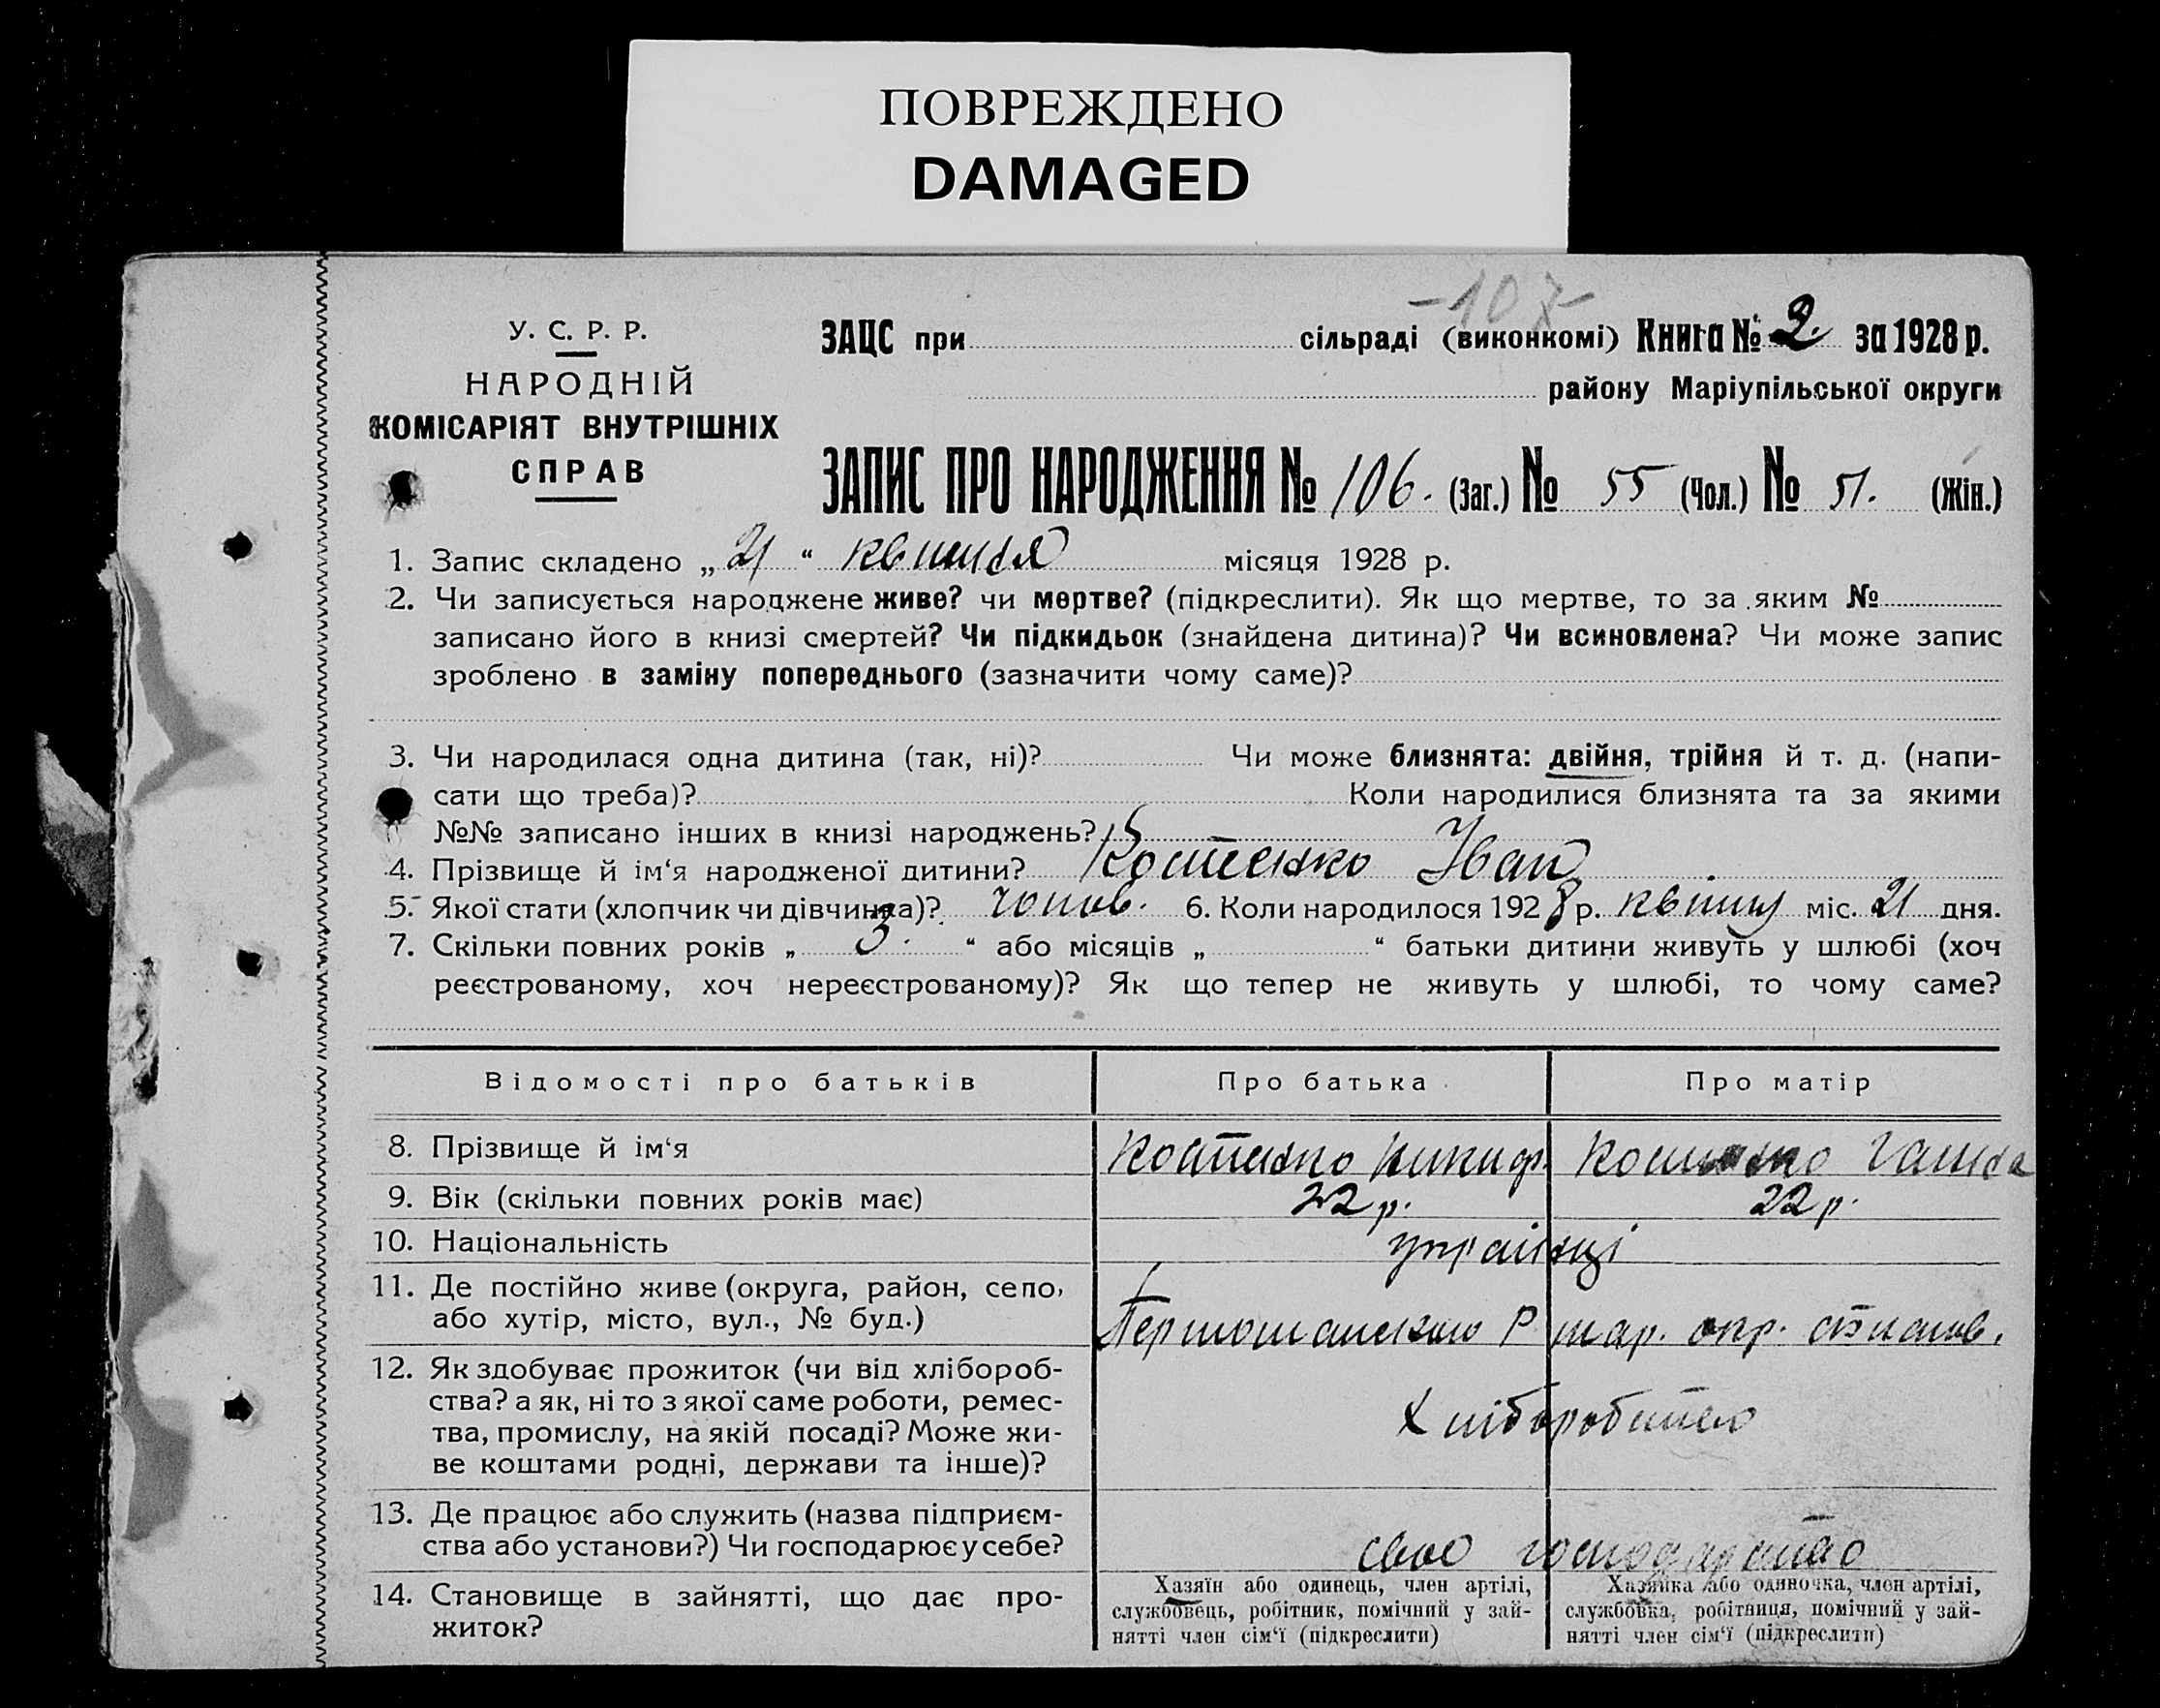 ПОВРЕЖДЕНО
DAMAGED
-107-
У. С. Р. Р.
НАРОДНІЙ
КОМІСАРІЯТ ВНУТРІШНІХ
СПРАВ
ЗАЦС при сільраді (виконкомі) Книга № 2. за 1928 р.
району Маріупільської округи
ЗАПИС ПРО НАРОДЖЕННЯ № 106. (Заг.) № 55 (Чол.) № 51. (Жін.)
1. Запис складено „ 21 “ квітня місяця 1928 р.
2. Чи записується народжене живе? чи мертве? (підкреслити). Як що мертве, то за яким №
записано його в книзі смертей? Чи підкидьок (знайдена дитина)? Чи всиновлена? Чи може запис
зроблено в заміну попереднього (зазначити чому саме)?
3. Чи народилася одна дитина (так, ні)? Чи може близнята: двійня, трійня й т. д. (напи-
сати що треба)? Коли народилися близнята та за якими
№№ записано інших в книзі народжень?
4. Прізвище й ім‘я народженої дитини? Костенко Іван
5. Якої стати (хлопчик чи дівчинка)? чолов. 6. Коли народилося 1928 р. квітня міс. 21 дня.
7. Скільки повних років „ 3. “ або місяців „ “ батьки дитини живуть у шлюбі (хоч
реєстрованому, хоч нереєстрованому)? Як що тепер не живуть у шлюбі, то чому саме?
Відомості про батьків Про батька Про матір
8. Прізвище й ім‘я Костенко Никиф. Костенко Ганна
9. Вік (скільки повних років має) 22 р. 22 р.
10. Національність українці
11. Де постійно живе (округа, район, село,
або хутір, місто, вул., № буд.) Р мар. окр.
12. Як здобуває прожиток (чи від хлібороб-
ства? а як, ні то з якої саме роботи, ремес-
тва, промислу, на якій посаді? Може жи-
ве коштами родні, держави та інше)?
Хліборобство
13. Де працює або служить (назва підприєм-
ства або установи?) Чи господарює у себе?
своє господарство
14. Становище в зайнятті, що дає про-
житок?
Хазяїн або одинець, член артілі,
службовець, робітник, помічний у зай-
нятті член сім‘ї (підкреслити)
Хазяйка або одиночка, член артілі,
службовка, робітниця, помічний у зай-
нятті член сім‘ї (підкреслити)